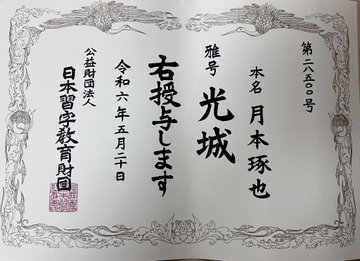 第二八五〇〇号
本名 月本琢也
雅号 光城
右授与します
令和六年五月二十日
公益財団法人
日本習字教育財団